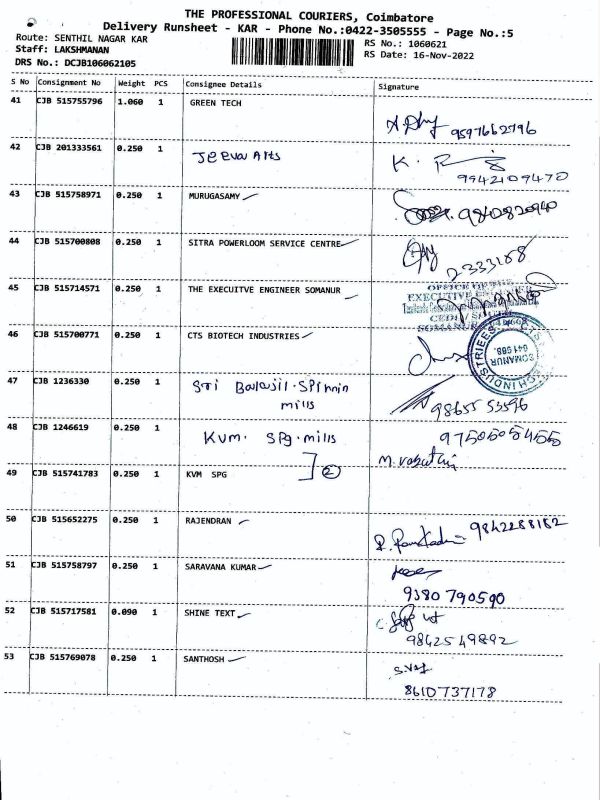 THE PROFESSIONAL COURIERS, Coimbatore
Delivery Runsheet - KAR - Phone No.:0422-3505555 - Page No.:5
Route: SENTHIL NAGAR KAR
Staff: LAKSHMANAN
DRS No.: DCJB106062105
RS No.: 1060621
RS Date: 16-Nov-2022
S No Consignment No Weight PCS Consignee Details Signature
41 CJB 515755796 1.060 1 GREEN TECH
9597662796
42 CJB 201333561 0.250 1 Jeeva Arts
K.
9942109470
43 CJB 515758971 0.250 1 MURUGASAMY
9840820940
44 CJB 515700808 0.250 1 SITRA POWERLOOM SERVICE CENTRE
2333188
45 CJB 515714571 0.250 1 THE EXECUITVE ENGINEER SOMANUR
OFFICE OF THE
EXECUTIVE ENGINEER
SOMANUR
46 CJB 515700771 0.250 1 CTS BIOTECH INDUSTRIES
SOMANUR
47 CJB 1236330 0.250 1 Sri Balaji. Spinnin
mills
9865553596
48 CJB 1246619 0.250 1 Kvm. SPg. mills
9750505455
49 CJB 515741783 0.250 1 KVM SPG
2
50 CJB 515652275 0.250 1 RAJENDRAN
9842288182
51 CJB 515758797 0.250 1 SARAVANA KUMAR
9380790590
52 CJB 515717581 0.090 1 SHINE TEXT
9842549892
53 CJB 515769078 0.250 1 SANTHOSH
8610737178